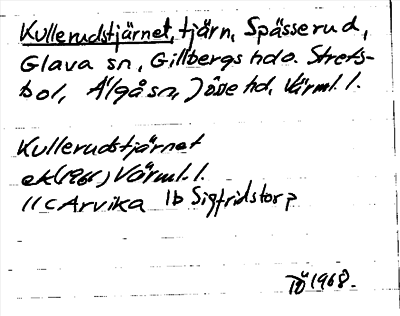 Kullerudstjärnet, tjärn, Spässerud,
Glava sn, Gillbergs hd o. Strets-
bol, Älgå sn, Jösse hd, Värml. l.
Kullerudstjärnet
ek (1966) Värml. l.
11 C Arvika 1b Sigfridstorp
1968.